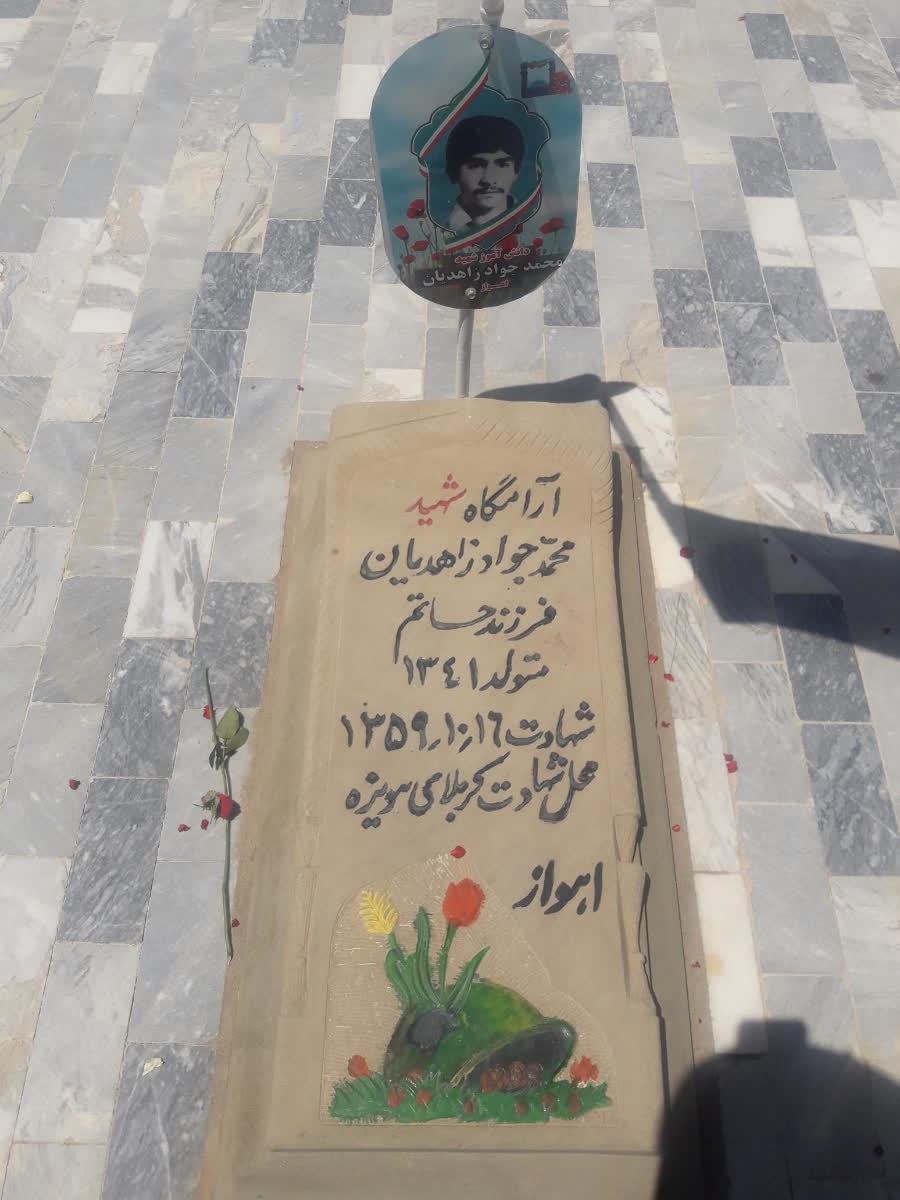 دانش آموز شهید
محمد جواد زاهدیان
اهواز
آرامگاه شهید
محمّد جواد زاهدیان
فرزند حاتم
متولد ۱۳٤۱
شهادت ۱٦٫۱۰٫۱۳۵۹
محل شهادت کربلای هویزه
اهواز